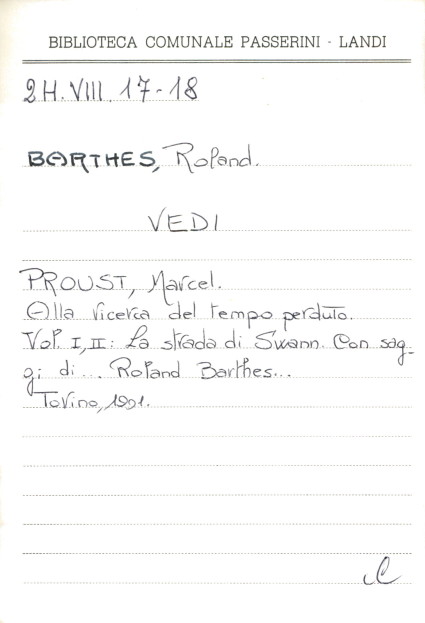 BIBLIOTECA COMUNALE PASSERINI - LANDI
2H.VIII.17-18
BARTHES, Roland.
VEDI
PROUST, Marcel.
Alla ricerca del tempo perduto.
Vol. I, II: La strada di Swann. Con sag-
gi di... Roland Barthes...
Torino, 1991.